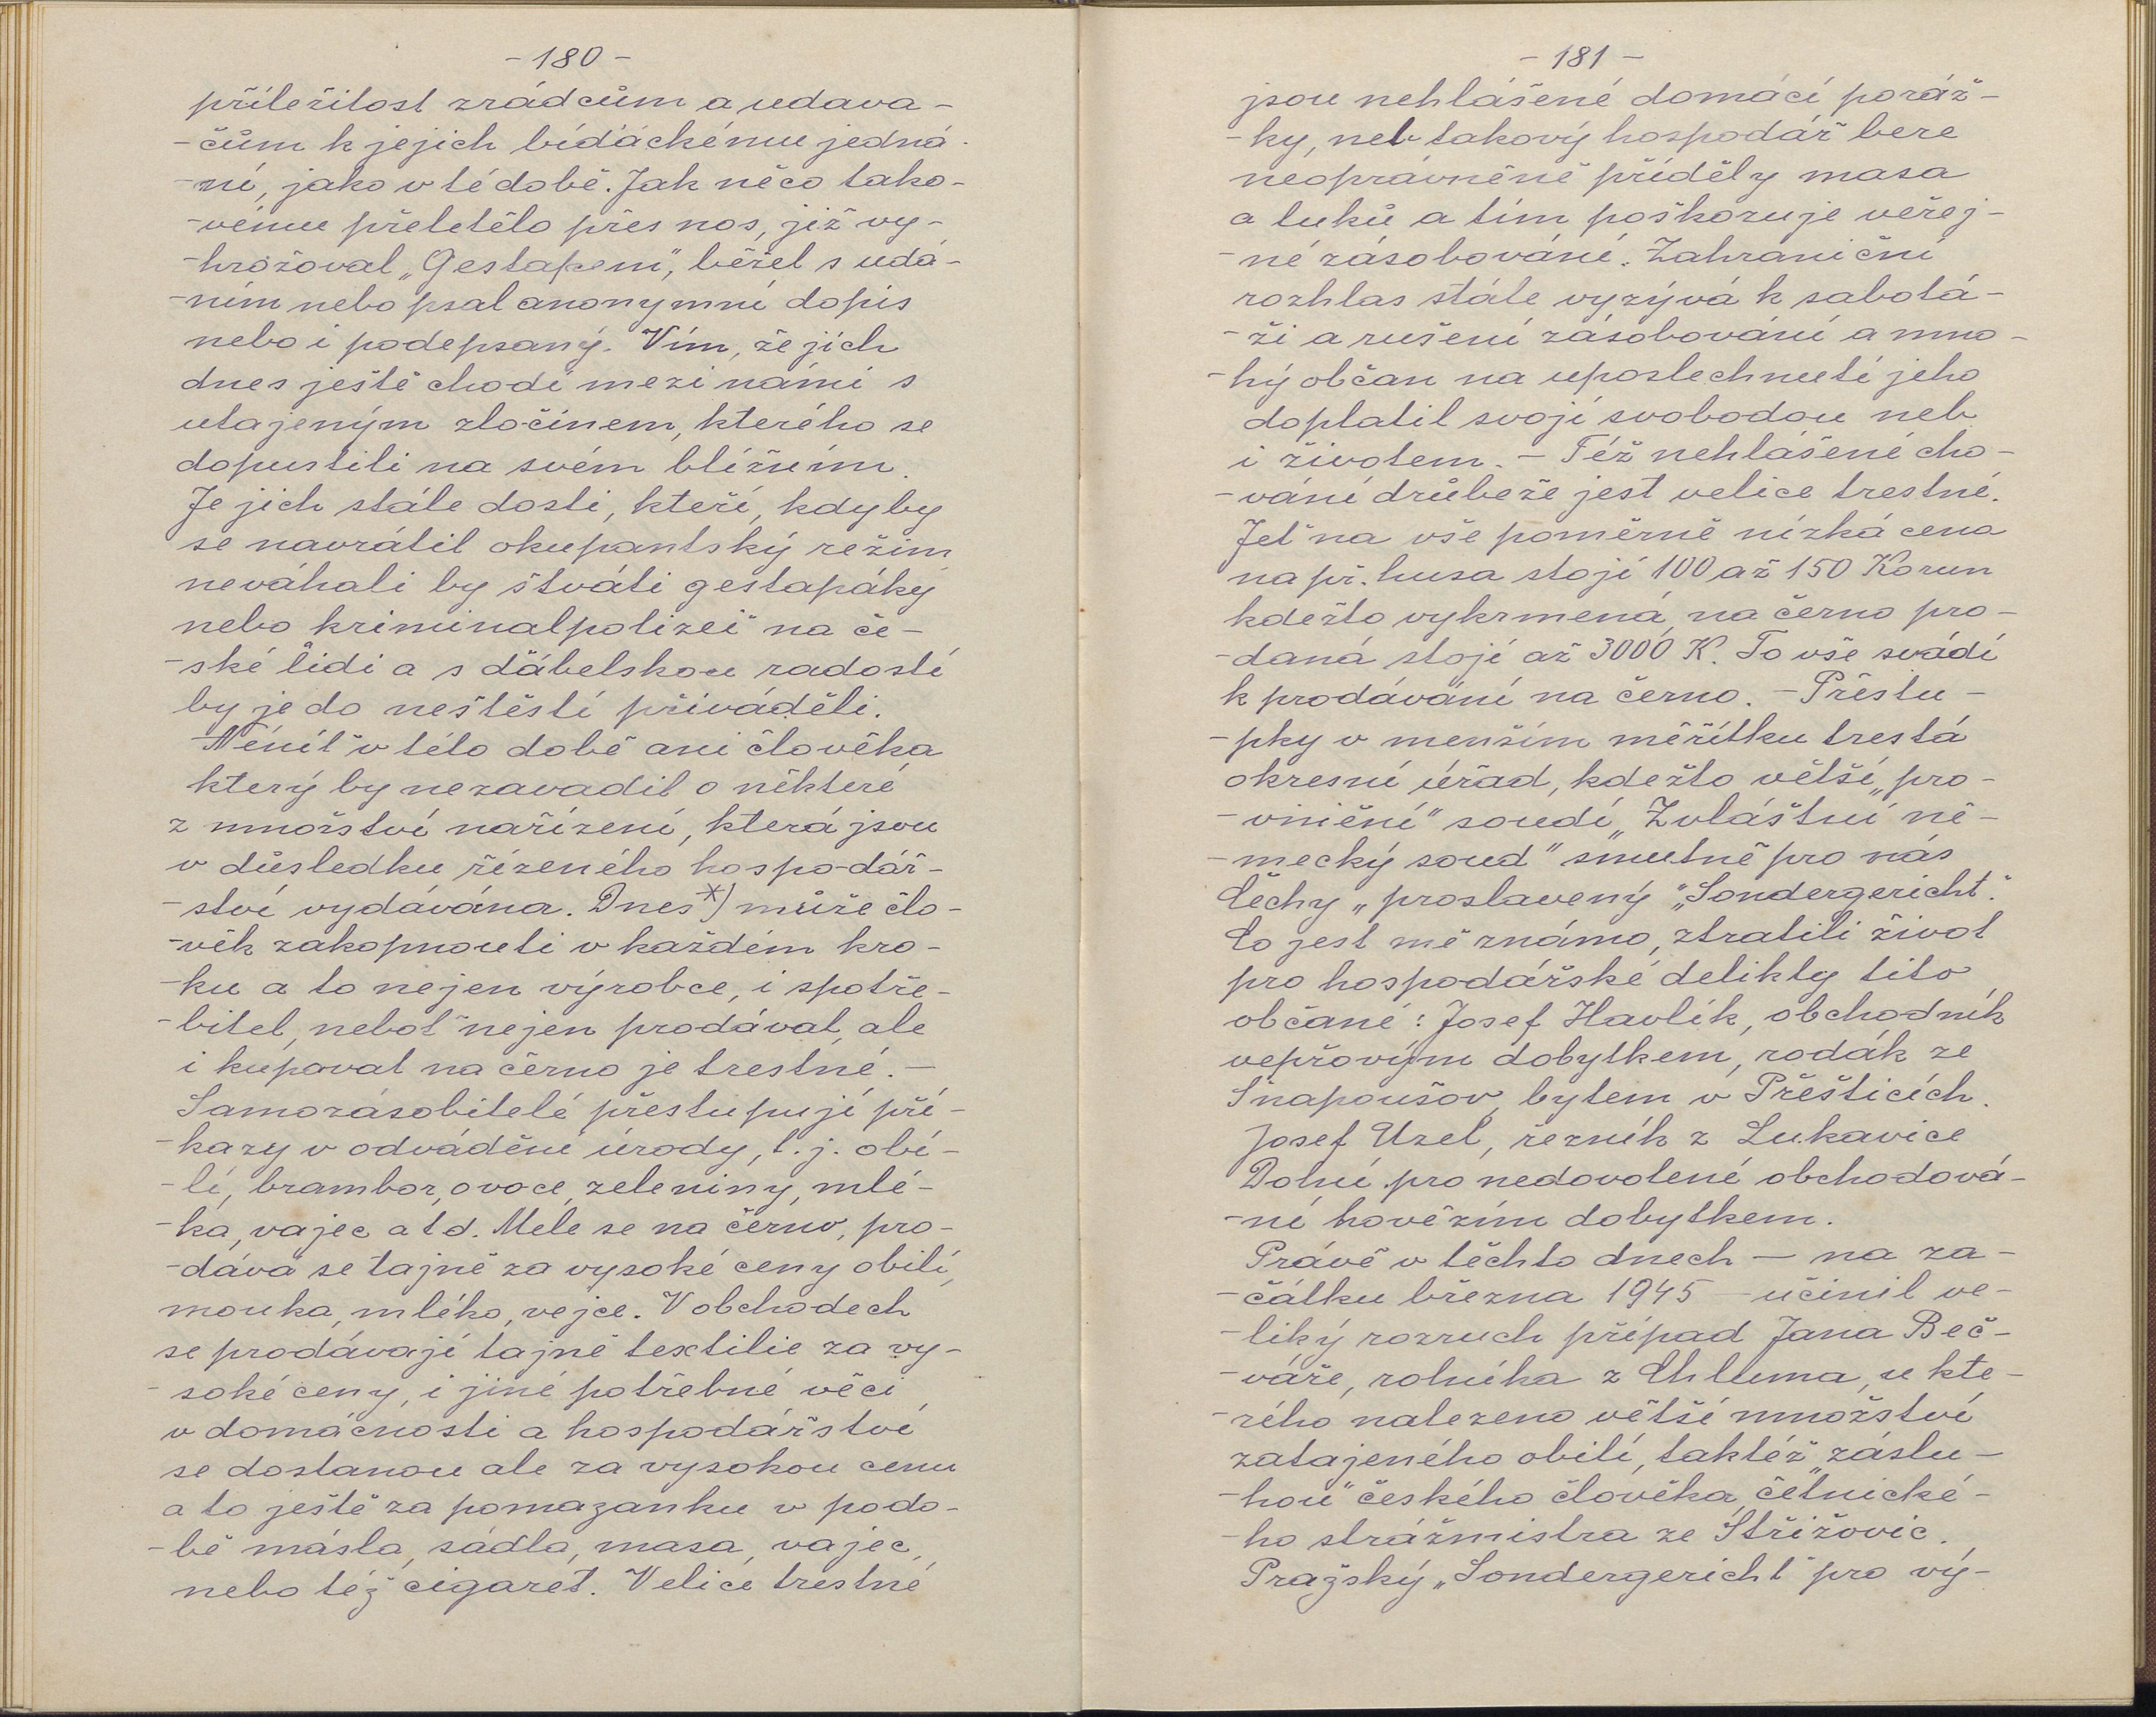 - 180 -
příležitost zrádcům a udava-
-čům k jejich bídáckému jedná-
-ní, jako v té době. Jak něco tako-
-vému přeletělo přes nos, již vy-
-hrožoval „Gestapem", běžel s udá-
-ním nebo psal anonymní dopis
nebo i podepsaný. Vím, že jich
dnes ještě chodí mezi námi s
utajeným zločinem, kterého se
dopustili na svém bližním.
Je jich stále dosti, kteří, kdyby
se navrátil okupantský režim
neváhali by štváti gestapáky
nebo kriminalpolizei na če-
-ské lidi a s ďábelskou radostí
by je do neštěstí přiváděli.
Neníť v této době ani člověka
který by nezavadil o některé
z množství nařízení, která jsou
v důsledku řízeného hospodář-
-ství vydávána. Dnes *) může člo-
-věk zakopnouti v každém kro-
-ku a to nejen výrobce, i spotře-
-bitel, neboť nejen prodávat, ale
i kupovat na černo je trestné. -
Samozásobitelé přestupují pří-
-kazy v odvádění úrody, t. j. obi-
-lí, brambor, ovoce, zeleniny, mlé-
-ka, vajec atd. Mele se na černo, pro-
-dává se tajně za vysoké ceny obilí,
mouka, mléko, vejce. V obchodech
se prodávají tajně textilie za vy-
-soké ceny, i jiné potřebné věci
v domácnosti a hospodářství
se dostanou ale za vysokou cenu
a to ještě za pomazanku v podo-
-bě másla, sádla, masa, vajec,
nebo též cigaret. Velice trestné
- 181 -
jsou nehlášené domácí poráž-
-ky, neb takový hospodář bere
neoprávněně příděly masa
a tuků a tím poškozuje veřej-
-né zásobování. Zahraniční
rozhlas stále vyzývá k sabotá-
-ži a rušení zásobování a mno-
-hý občan na uposlechnutí jeho
doplatil svojí svobodou neb
i životem. - Též nehlášené cho-
-vání drůbeže jest velice trestné.
Jeť na vše poměrně nízká cena
na př. husa stojí 100 až 150 Korun
kdežto vykrmená, na černo pro-
-daná stojí až 3000 K. To vše svádí
k prodávání na černo. - Přestu-
-pky v menším měřítku trestá
okresní úřad, kdežto větší „pro-
-vinění" soudí „Zvláštní ně-
-mecký soud" smutně pro nás
Čechy „proslavený „Sondergericht".
Co jest mě známo, ztratili život
pro hospodářské delikty tito
občané: Josef Havlík, obchodník
vepřovým dobytkem, rodák ze
Snapoušov, bytem v Přešticích.
Josef Uzel, řezník z Lukavice
Dolní pro nedovolené obchodová-
-ní hovězím dobytkem.
Právě v těchto dnech — na za-
-čátku března 1945 - učinil ve-
-liký rozruch případ Jana Beč-
-váře, rolníka z Chluma, u kte-
-rého nalezeno větší množství
zatajeného obilí, taktéž „záslu-
-hou" českého člověka, četnické-
-ho strážmistra ze Střižovic.
Pražský „Sondergericht" pro vý-